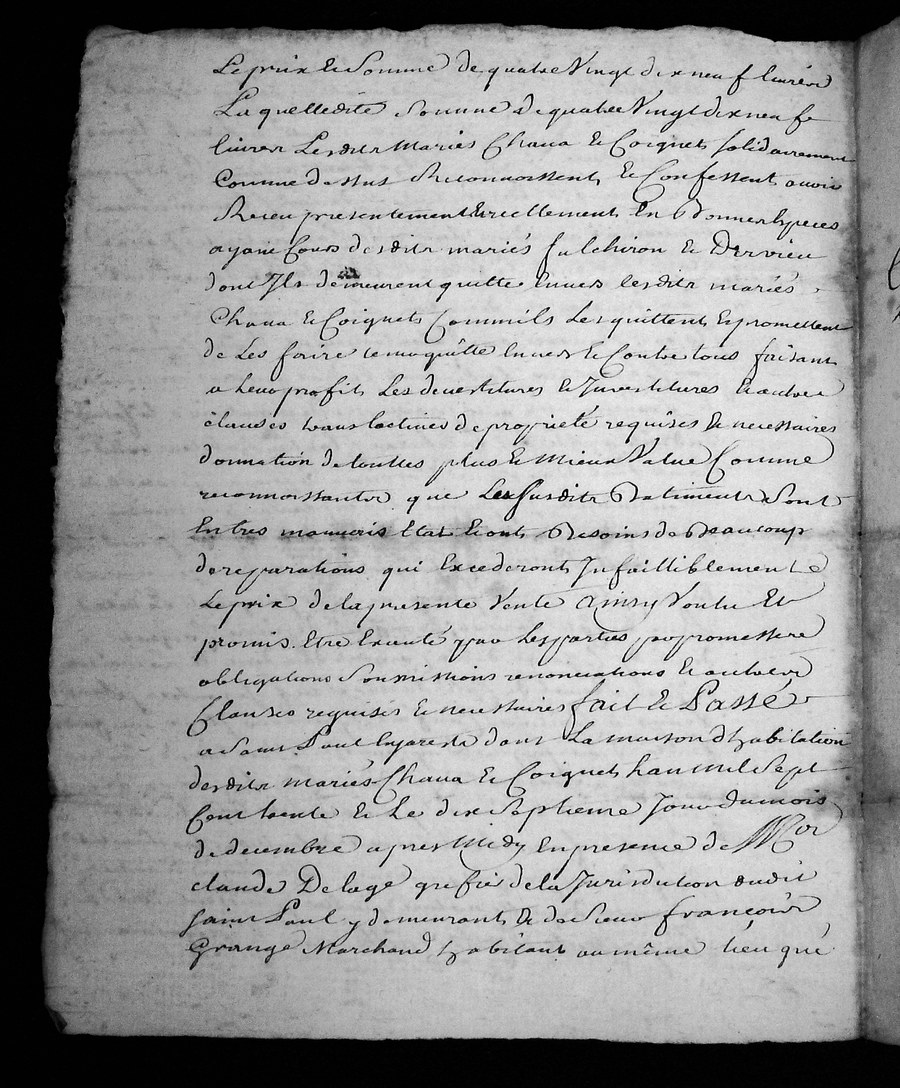 Le prix & Somme de quatre Vingt dix neuf livres
La quelledite Somme de quatre Vingt dix neuf
livres Lesdits Mariés Chava & Coignet solidairement
Comme dessus Reconnoissent & Confessent avoir
Receu presentement & reellement En Bonnes Especes
ayant Cours desdits mariés fulchiron & Dervieu
dont Ils demeurent quitte Envers lesdits mariés
Chava & Coignet Comm'ils Les quittent & promettent
de Les faire tenir quitte Envers & Contre tous faisant
a Leur profit Les devestitures & Investitures & autres
clauses translatives de proprieté requises & necessaires
donnation de touttes plus & Mieux Value Comme
reconnoissants que Lessusdits Batiments Sont
En tres mauvais Etat & ont Besoins de Beaucoup
de reparations qui Excederont Infailliblement
Le prix de la presente Vente Ainsy Voulu Et
promis Etre Executé par Les parties par promesse
obligations Soumissions renonciations & autres
Clauses requises & necessaires fait & Passé
a Saint Paul En Jarest dans La maison d'habitation
desdits mariés Chava & Coignet L'an mil Sept
Cent trente & Le dix Septieme Jour du mois
de decembre apres Midy En presence de
claude Delage grefier de la Jurisdiction dudit
Saint Paul y demeurant & de Sieur françois
Grange Marchand habitant au même lieu qui